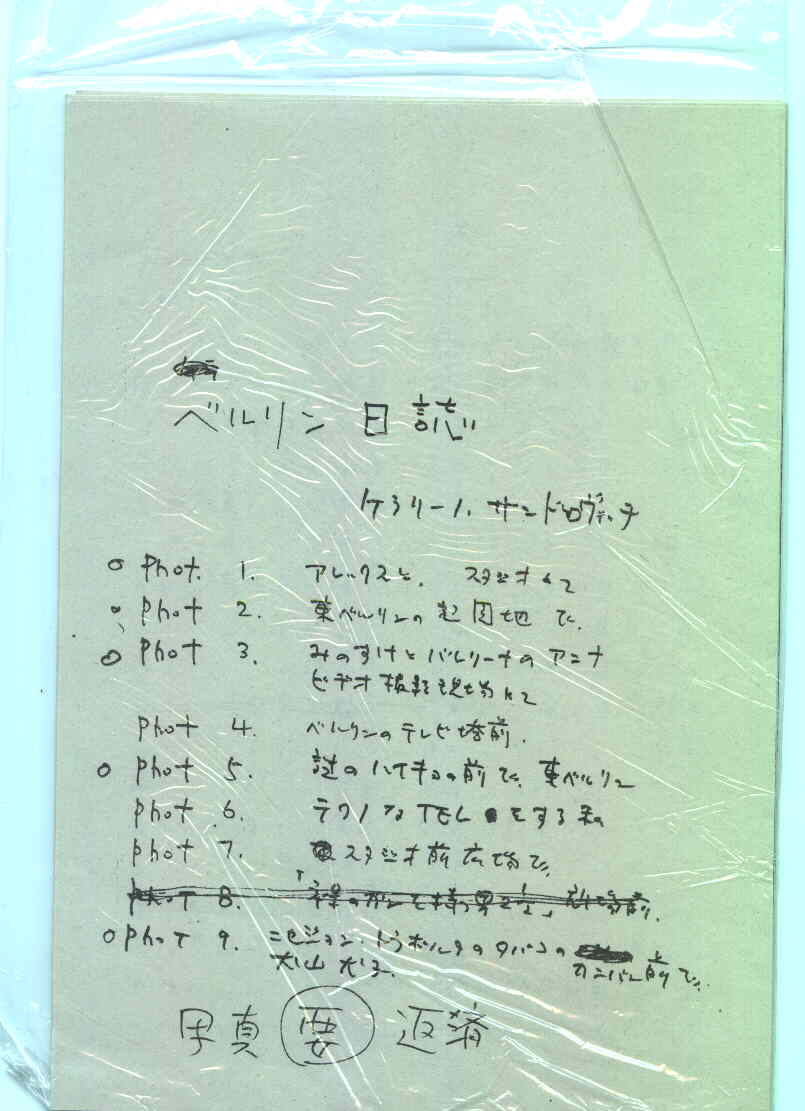 ベルリン日誌
ケラリーノ・サンドロヴィッチ
Phot. 1. アレックスと、スタジオにて
Phot 2. 東ベルリンの 団地で、
Phot 3. みのすけとバルリーナのアンナ
ビデオ撮影現場にて
Phot 4. ベルリンのテレビ塔前.
Phot 5. 謎のハイキョの前で、東ベルリン
Phot 6. テクノなTELをする私
Phot 7. スタジオ前広場で、
Phot 8. 男 2 1/2」
Phot 9. ニセジョン・トラボルタのタバコの
カンバン前で、
写真 要 返済